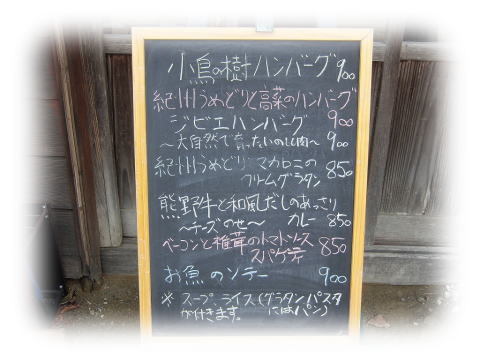 小鳥の樹ハンバーグ 900
紀州うめどりと高菜のハンバーグ
900
ジビエハンバーグ
〜大自然で育ったいのしし肉〜 900
紀州うめどりとマカロニの
クリームグラタン 850
熊野牛と和風だしのあっさり
〜チーズのせ〜 カレー 850
ベーコンと椎茸のトマトソース
スパゲティ 850
お魚のソテー 900
※ スープ、ライス(グラタン パスタ
が付きます。 にはパン)